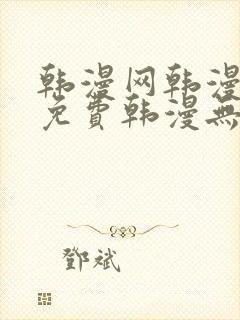 韩漫网韩漫
免費韩漫無
鄧斌